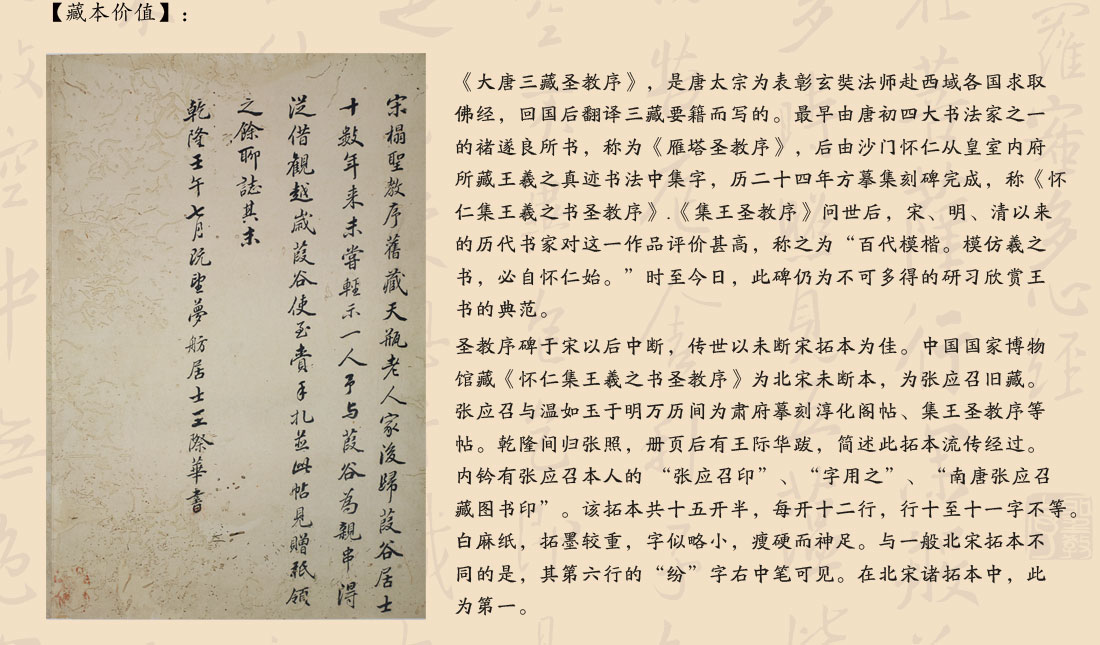 【藏本价值】：
宋榻聖教序舊藏天瓶老人家後歸葭谷居士
十數年来未嘗輕示一人予与葭谷為親串得
从借觀越歲葭谷使至賫手札並此帖見贈祗領
之餘聊誌其末
乾隆壬午七月既望夢舫居士王際華書
《大唐三藏圣教序》，是唐太宗为表彰玄奘法师赴西域各国求取
佛经，回国后翻译三藏要籍而写的。最早由唐初四大书法家之一
的褚遂良所书，称为《雁塔圣教序》，后由沙门怀仁从皇室内府
所藏王羲之真迹书法中集字，历二十四年方摹集刻碑完成，称《怀
仁集王羲之书圣教序》.《集王圣教序》问世后，宋、明、清以来
的历代书家对这一作品评价甚高，称之为“百代模楷。模仿羲之
书，必自怀仁始。”时至今日，此碑仍为不可多得的研习欣赏王
书的典范。
圣教序碑于宋以后中断，传世以未断宋拓本为佳。中国国家博物
馆藏《怀仁集王羲之书圣教序》为北宋未断本，为张应召旧藏。
张应召与温如玉于明万历间为肃府摹刻淳化阁帖、集王圣教序等
帖。乾隆间归张照，册页后有王际华跋，简述此拓本流传经过。
内钤有张应召本人的 “张应召印”、“字用之”、“南唐张应召
藏图书印”。该拓本共十五开半，每开十二行，行十至十一字不等。
白麻纸，拓墨较重，字似略小，瘦硬而神足。与一般北宋拓本不
同的是，其第六行的“纷”字右中笔可见。在北宋诸拓本中，此
为第一。